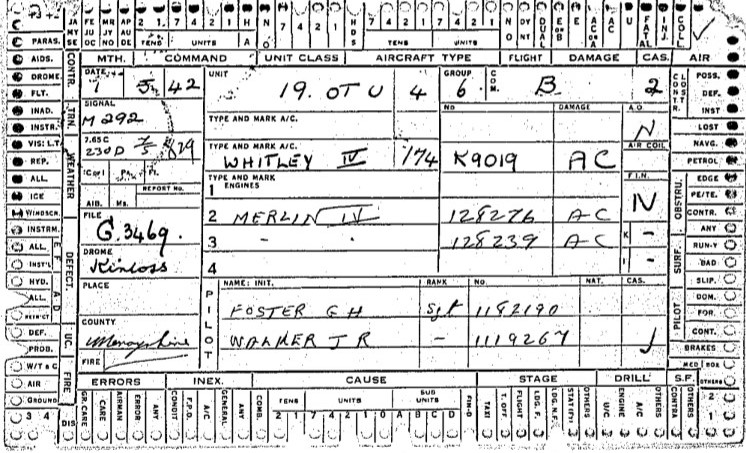 JA FE MR AP 2 1 7 4 2 1 H N 7 4 2 1 H 7 4 2 1 7 4 2 1 N DY DUAL E or B AC AC U FATAL INJ. COLL.
MY DC NO DE TENS UNITS A O DS TENS UNITS O NT
PARAS. CONTR. MTH. COMMAND UNIT CLASS AIRCRAFT TYPE FLIGHT DAMAGE CAS. AIR
AIDS. DATE UNIT GROUP COM. CONTR. LOST POSS.
DROME. 1 5 42 19. OTU 4 6. B 2 DEF.
FLT. SIGNAL NO DAMAGE A.O. INST
INAD. TRN. M292 TYPE AND MARK A/C. N LOST
INSTR. 7.65 C AIR COLL NAVG.
VIS: L.T. 230 D 7/5 829 TYPE AND MARK A/C. PETROL
REP. WEATHER WHITLEY IV 174 K9019 AC F.I.N. EDGE
ALL REPORT No. TYPE AND MARK ENGINES IV PE/TE.
ICE AIB. Ms. 1 OBSTRU. CONTR.
WINDSCR. FILE 2 MERLIN IV 128276 AC ANY
INSTRM. G.3469. 3 - - 128239 AC K - RUN-Y
ALL DEFECT. DROME I - SURF. BAD
INST'L Kinloss 4
HYD. PLACE PILOT NAME: INIT. RANK NO. NAT. CAS. SLIP.
ALL. FOSTER G H Sgt 1182190 PILOT DOM.
FOR.
DEF. UC. COUNTY WALKER J R - 1119267 J CONT.
PROB. Morayshire BRAKES
W/T & C FIRE FIRE
AIR ERRORS INEX. CAUSE STAGE DRILL S.F. OTHERS
GROUND GR. CARE CARE AIRMAN ERROR ANY CONDIT F.P.D. A/C GENERAL ANY COMB. TENS UNITS SUB UNITS FIN-D TAXI T. OFF FLIGHT LDG. F. LDG. N.F. OTHERS U/C ENGINE A/C OTHERS CONTRA OTHERS
3 4 DIS 2 1 7 4 2 1 0 A B C D 2 1